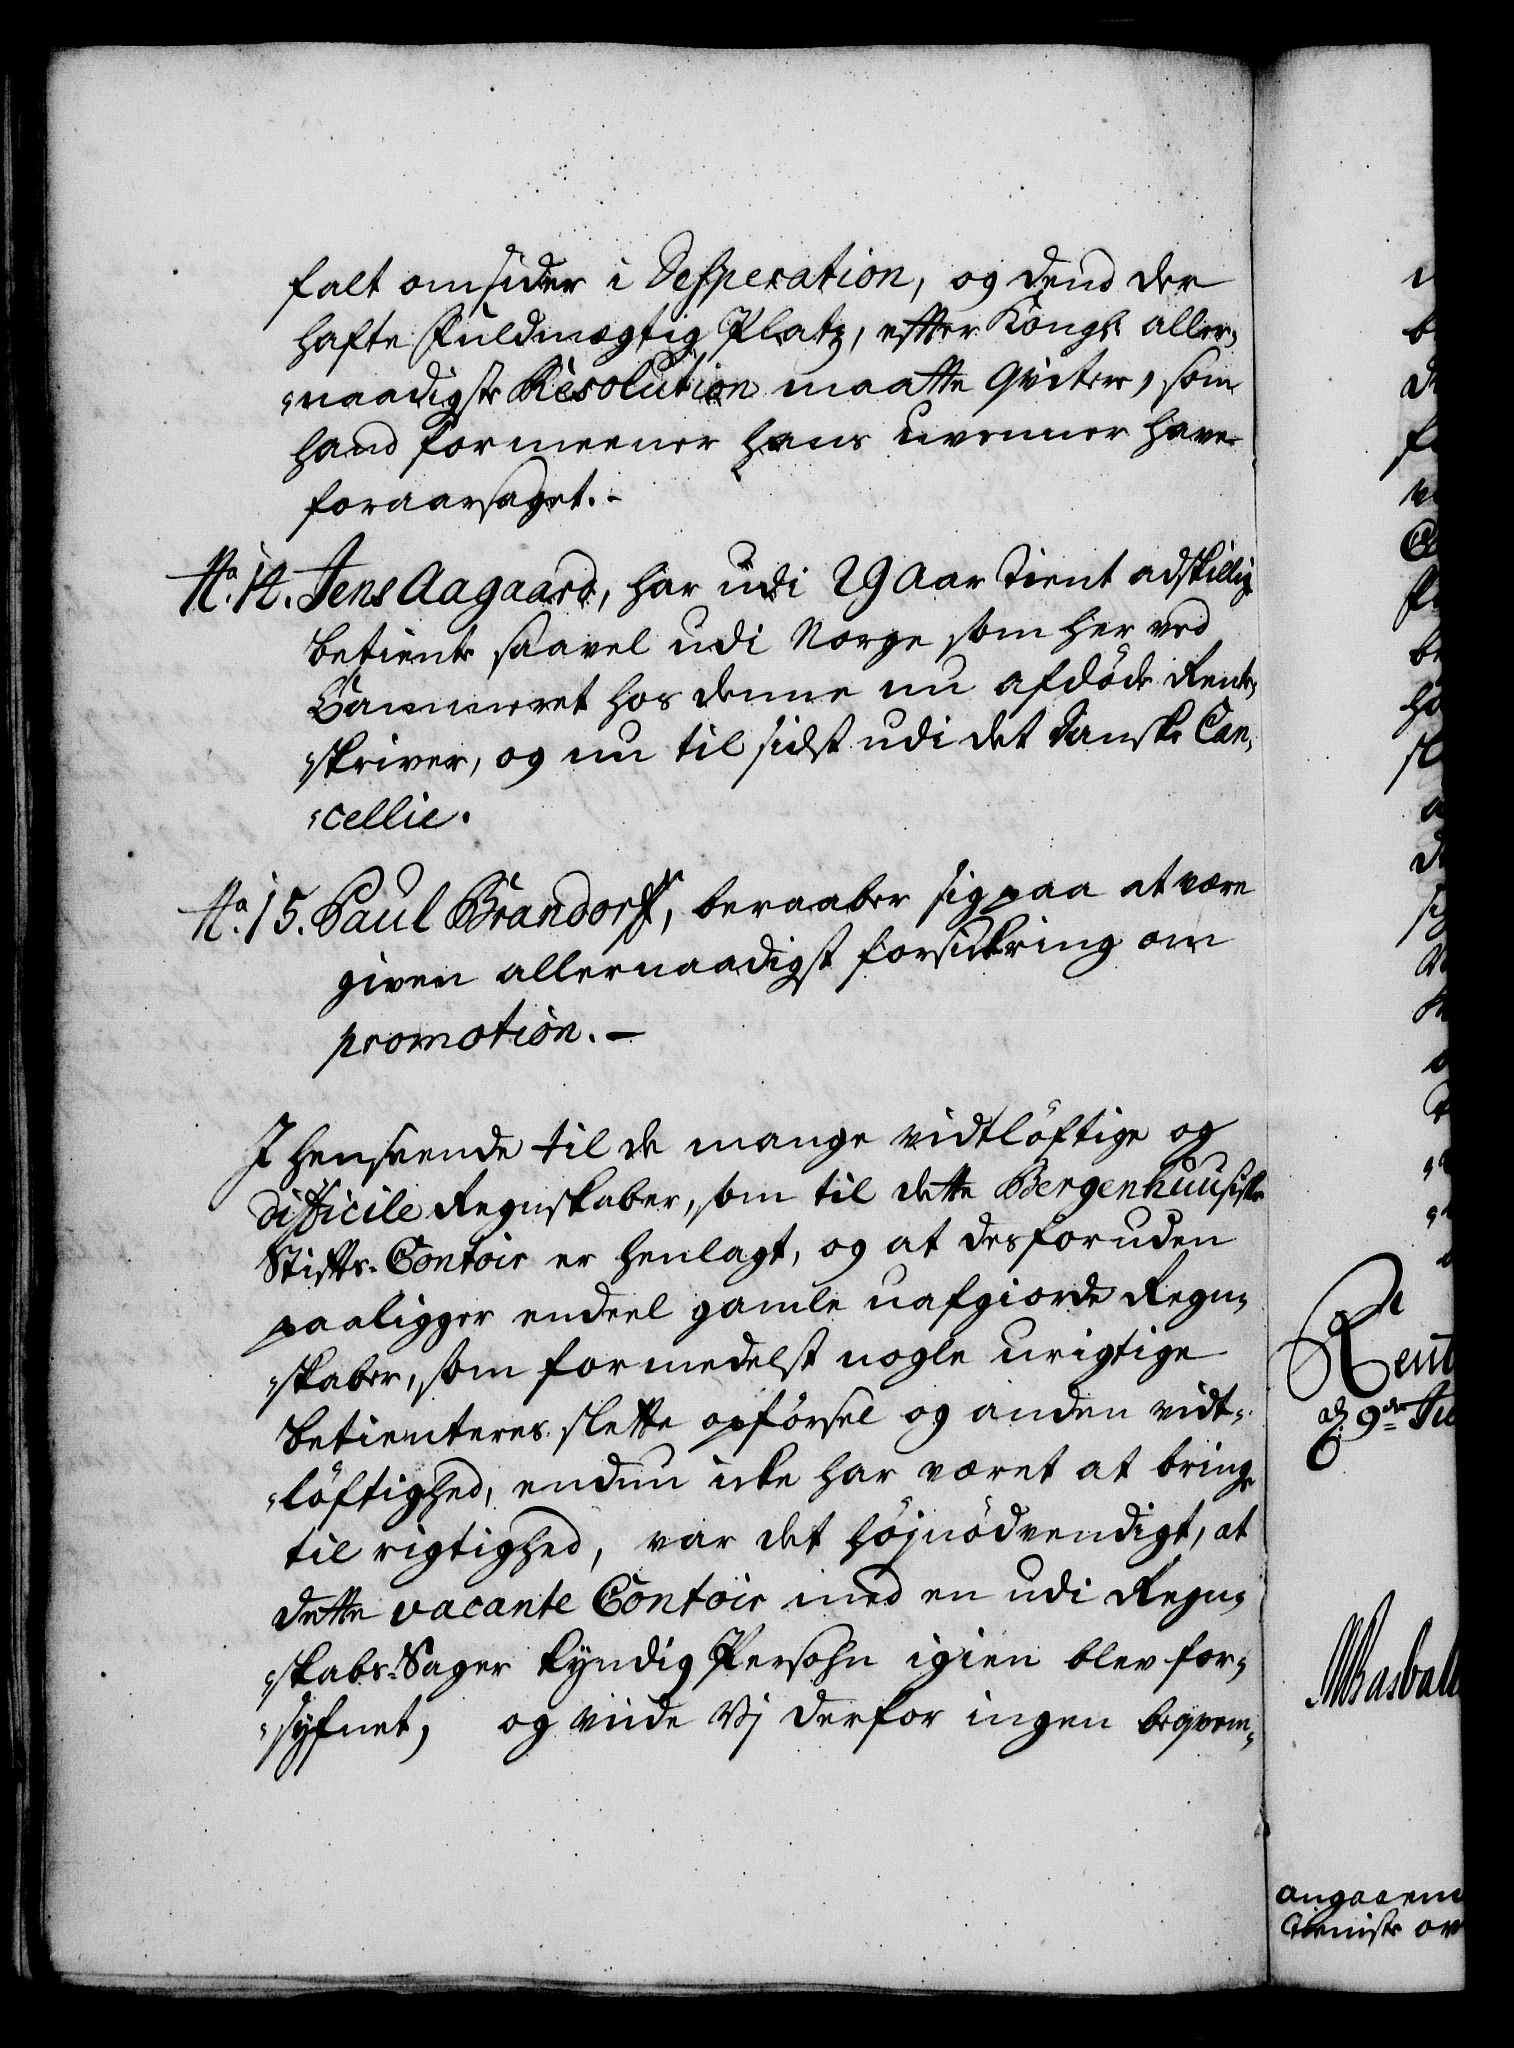 falt omsider i Desperation, og dend der
hafte Fuldmægtig Platz, efter Kongl. aller,,
,,naadigste Resolution maatte qvitere, som
hand formeener hans uvenner have
foraarsaget.-
No. 14. Jens Aagaard, har udi 29 Aar tient adskillige
betiente saavel udi Norge som her ved
Cammeret hos denne nu afdöde Rente,,
,,skriver, og nu til sidst udi det Danske Can,,
,,cellie.
No. 15. Paul Brandorff, beraaber sig paa at være
given allernaadigst forsickring om
promotion.-
I henseende til de mange vidtlöftige og
difficile Regnskaber, som til dette Bergenhuusiske
Stifts-Contoir er henlagt, og at desforuden
paaligger endeel gamle uafgiorde Regn,,
,,skaber, som formedelst nogle urigtige
betienteres slette opförsel og anden vidt,,
,,löftighed, endnu icke har været at bringe
til rigtighed, var det höjnödvendigt, at
dette vacante Contoir med en udi Regn,,
,,skabs-Sager kyndig Persohn igien blev for,,
,,syfnet, og viide Vj derfor ingen beqvem,,
Rent
d. 9de Ju
angaaend